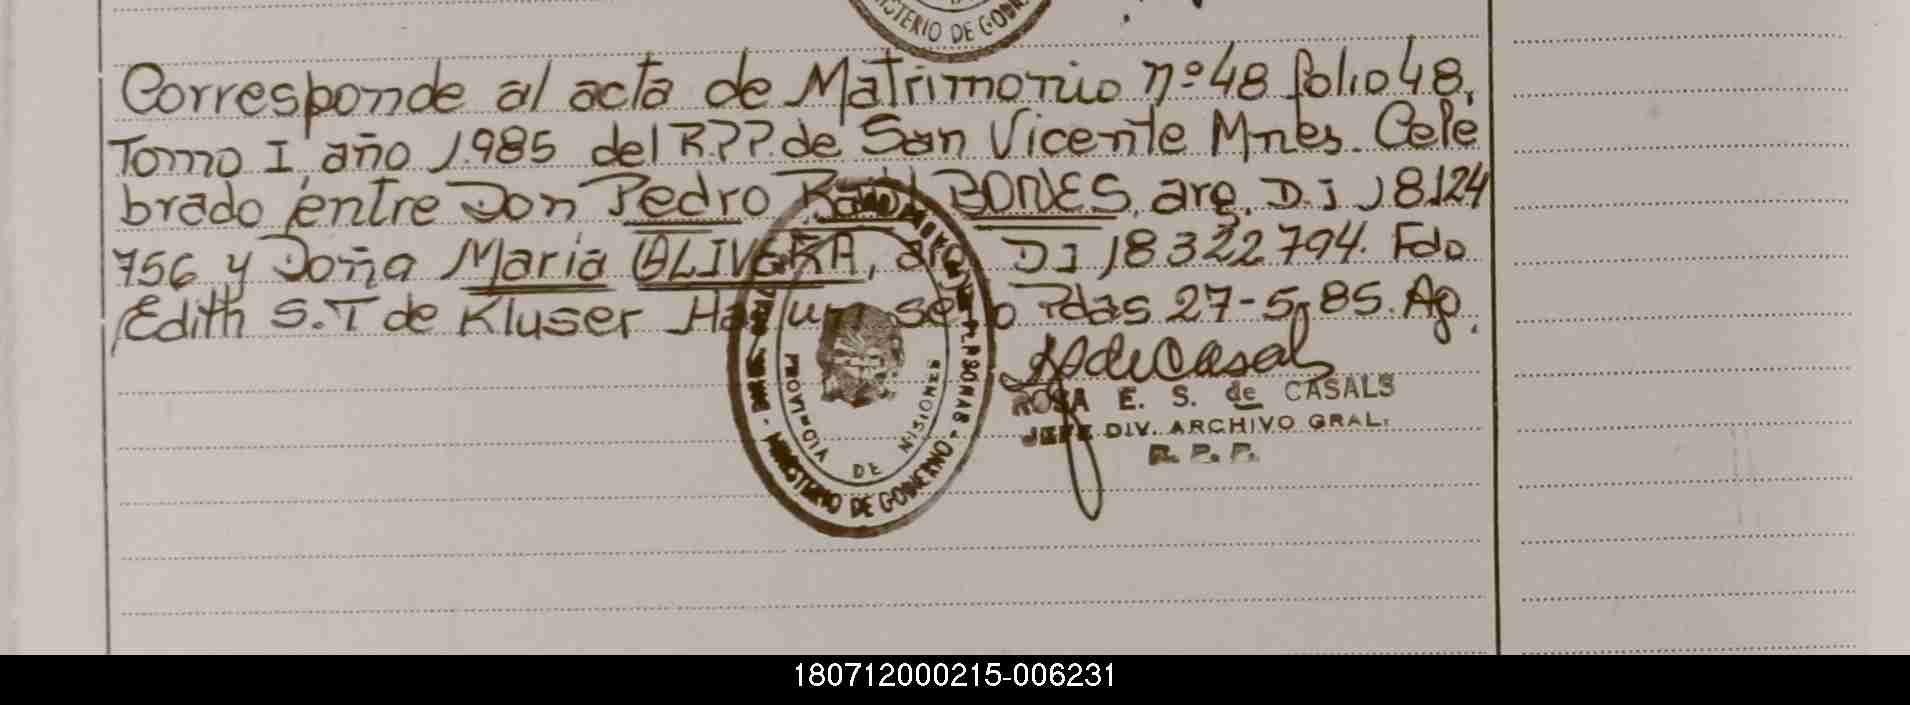 MINISTERIO DE GOBIERNO
Corresponde al acta de Matrimonio nº 48 folio 48,
Tomo I, año 1.985 del R.P.P. de San Vicente Mnes. Cele
brado entre Don Pedro Raúl BONES, arg. D.I 18.124
756 y Doña Maria OLIVERA, arg. DI 18322794. Fdo
Edith S.T de Kluser Hay un sello Pdas 27-5-85. Ag.
PERSONAS - MINISTERIO DE GOBIERNO -
PROVINCIA DE MISIONES
ROSA E. S. de CASALS
JEFE DIV. ARCHIVO GRAL.
R. P. P.
180712000215-006231